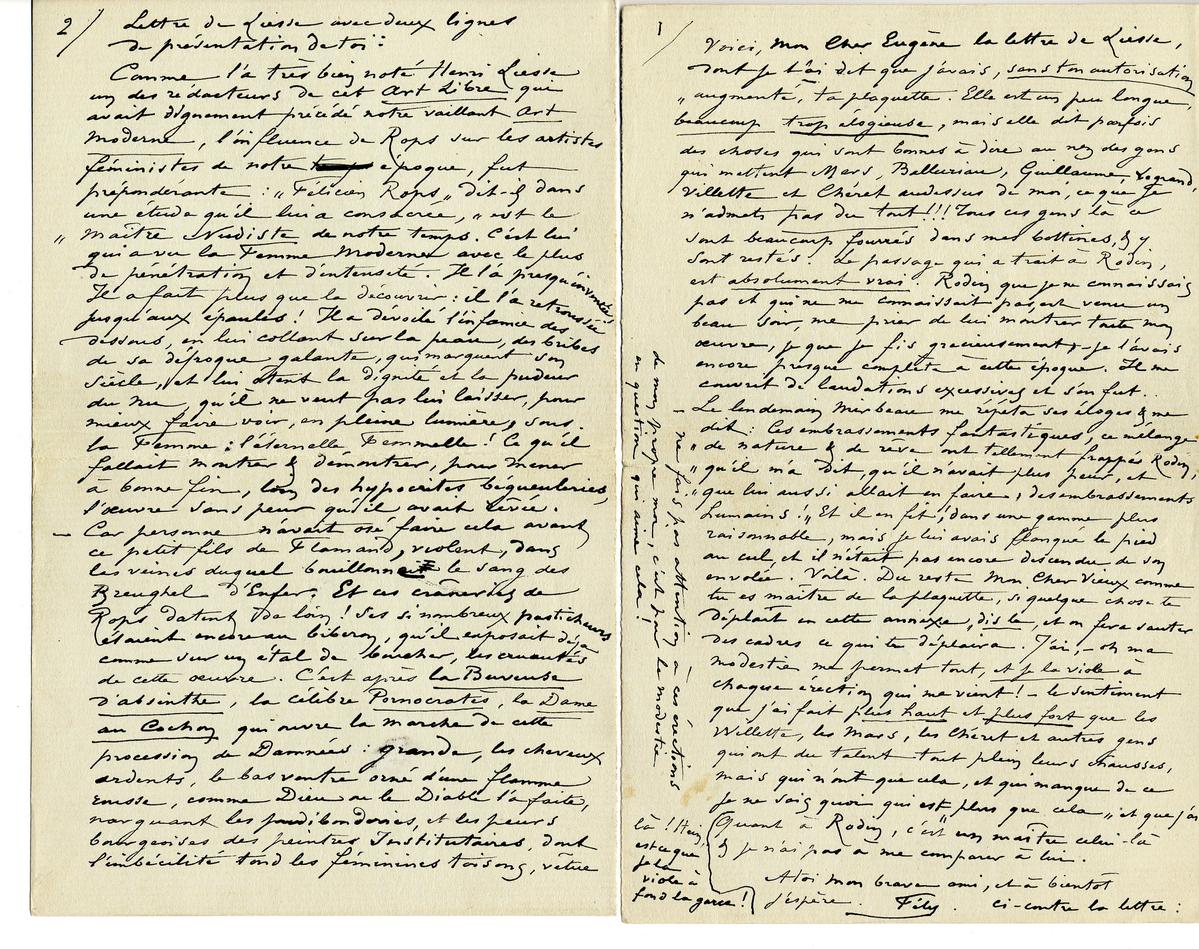 1/
Voici, mon Cher Eugène la lettre de Liesse,
dont je t'ai dit que j'avais, sans ton autorisation
„ augmenté, ta plaquette. Elle est un peu longue,
beaucoup trop élogieuse, mais elle dit parfois
des choses qui sont bonnes à dire au nez des gens
qui mettent Mars, Guillaume, Legrand,
Villette et Chéret audessus de moi, ce que Je
n'admets pas du tout!!! Tous ces gens là ce
sont beaucoup fourrés dans mes bottines, & y
sont restés. Le passage qui a trait à Rodin,
est absolument vrai. Rodin que je ne connaissais
pas et qui ne me connaissait pas, est venu un
beau soir, me prier de lui montrer toute mon
œuvre, ce que je fis gracieusement, – je l'avais
encore presque complète à cette époque. Il me
couvrit de laudations excessives et s'en fut..
Le lendemain Mirbeau me répéta ses éloges & me
dit : Ces embrassements fantastiques, ce mélange
„ de nature & de rêve ont tellement frappés Rodin,
„ qu'il m'a dit, qu'il n'avait plus peur, et
„ que lui aussi allait en faire, des embrassements
humains!„ Et il en fit, dans une gamme plus
raisonnable, mais je lui avais flanqué le pied
au cul, et il n'était pas encore descendu de son
envolée. Voilà. Du reste mon Cher Vieux comme
tu es maître de la plaquette, si quelque chose te
déplaît en cette annexe, dis le, et on fera sauter
des cadres ce qui te déplaira. J'ai, – oh ma
modestie me permet tout, et je la viole à
chaque érection qui me vient! – le sentiment
que j'ai fait plus haut et plus fort que les
Willette, les Mars, les Chéret et autres gens
qui ont du talent tout plein leurs chausses,
mais qui n'ont que cela, et qui manque de ce
Je ne sais quoi qui est „ plus que cela „ et que j'ai
là! Hein,
est ce que
je la
viole à
fond la garce!
Quant à Rodin, c'est un maître celui-là
& je n'ai pas à me comparer à lui.
A toi mon brave ami, et à bientôt
j'espère. Fély. Ci-contre la lettre :
– ne fais pas attention à ces érections
de mon propre moi, c'est pour la modestie
en question qui aime cela!
2/
Lettre de Liesse avec deux lignes
de présentation de toi :
Comme l'a très bien noté Henri Liesse
un des rédacteurs de cet Art Libre qui
avait dignement précédé notre vaillant Art
Moderne, l'influence de Rops sur les artistes
féministes de notre époque, fut
prépondérante : „ Félicien Rops „ dit-il dans
une étude qu'il lui a consacrée, „ est le
„ Maître Nudiste de notre temps. C'est lui
qui a vu la Femme Moderne avec le plus
de pénétration et d'intensité. Il l'a presqu'inventée
Il a fait plus que la découvrir : il l'a retroussée
jusqu'aux épaules! Il a dévoilé l'infamie des
dessous, en lui collant sur la peau, des bribes
de sa défroque galante, qui marquent son
siècle, et lui ôtent la dignité et la pudeur
du nu, qu'il ne veut pas lui laisser, pour
mieux faire voir, en pleine lumière, sous
la Femme : l'éternelle Femmelle! Ce qu'il
fallait montrer & démontrer, pour mener
à bonne fin, loin des hypocrites bégueuleries,
l'œuvre sans peur qu'il avait rêvée.
– Car personne n'avait osé faire cela avant
ce petit fils de Flamand, violent, dans
les veines duquel bouillonnait le sang des
Breughel d'Enfer. Et ces crâneries de
Rops datent de loin! Ses si nombreux pasticheurs
étaient encore au biberon, qu'il exposait déjà
comme sur un étal de boucher, les cruautés
de cette œuvre. C'est après la Buveuse
d'absinthe, la célèbre Pornocratès, la Dame
au Cochon qui ouvre la marche de cette
procession de Damnées : grande, les cheveux
ardents, le bas ventre orné d'une flamme
rousse, comme Dieu ou le Diable l'a faite,
narguant les pudibonderies, et les peurs
bourgeoises des peintres Institutaires, dont
l'imbécilité tond les féminines toisons, vêtue